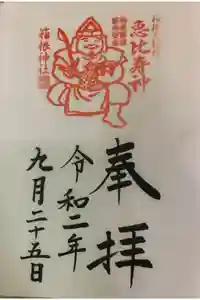 恵比寿神
箱根神社
奉拝
令和二年
九月二十五日